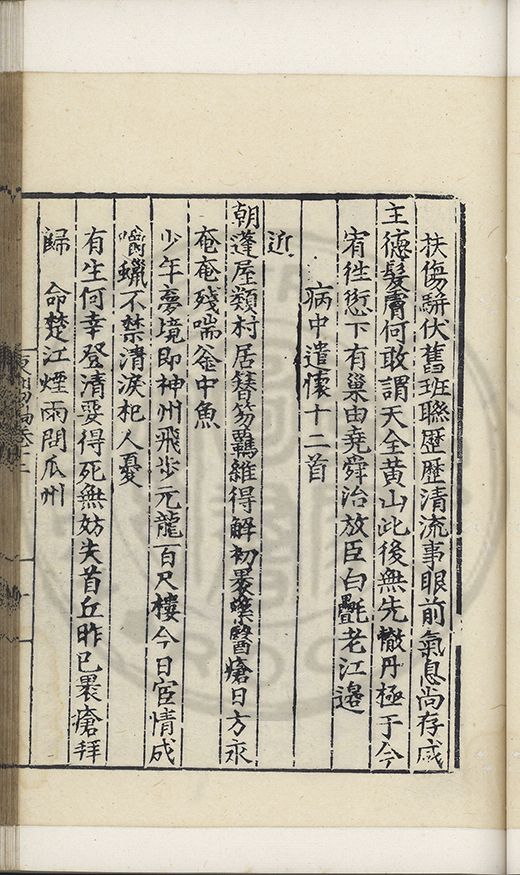 扶傷駢伏舊班聯歷歷清流事眼前氣息尚存感
主德髮膚何敢謂天全黄山此後無先轍丹極于今
宥徃愆下有巢由堯舜治放臣白髮老江邊
病中遣懷十二首
近
朝蓬屋類村居簪笏羈維得解初裹藥醫瘡日方永
奄奄殘喘釜中魚
少年夢境即神州飛步元龍百尺樓今日宦情成
嚼蠟不禁清淚杞人憂
有生何幸登清要得死無妨失首丘昨已裹瘡拜
歸 命楚江煙雨問瓜州